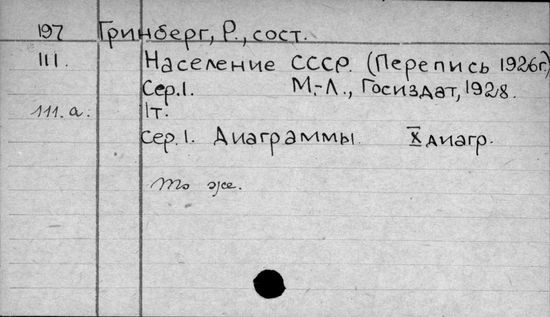 197 Гринберг, Р., сост.
111. Население СССР. (Перепись 1926г.)
Сер.1. М.-Л., Госиздат, 1928.
111.а. 1т.
Сер.1. Диаграммы X диагр.
То же.